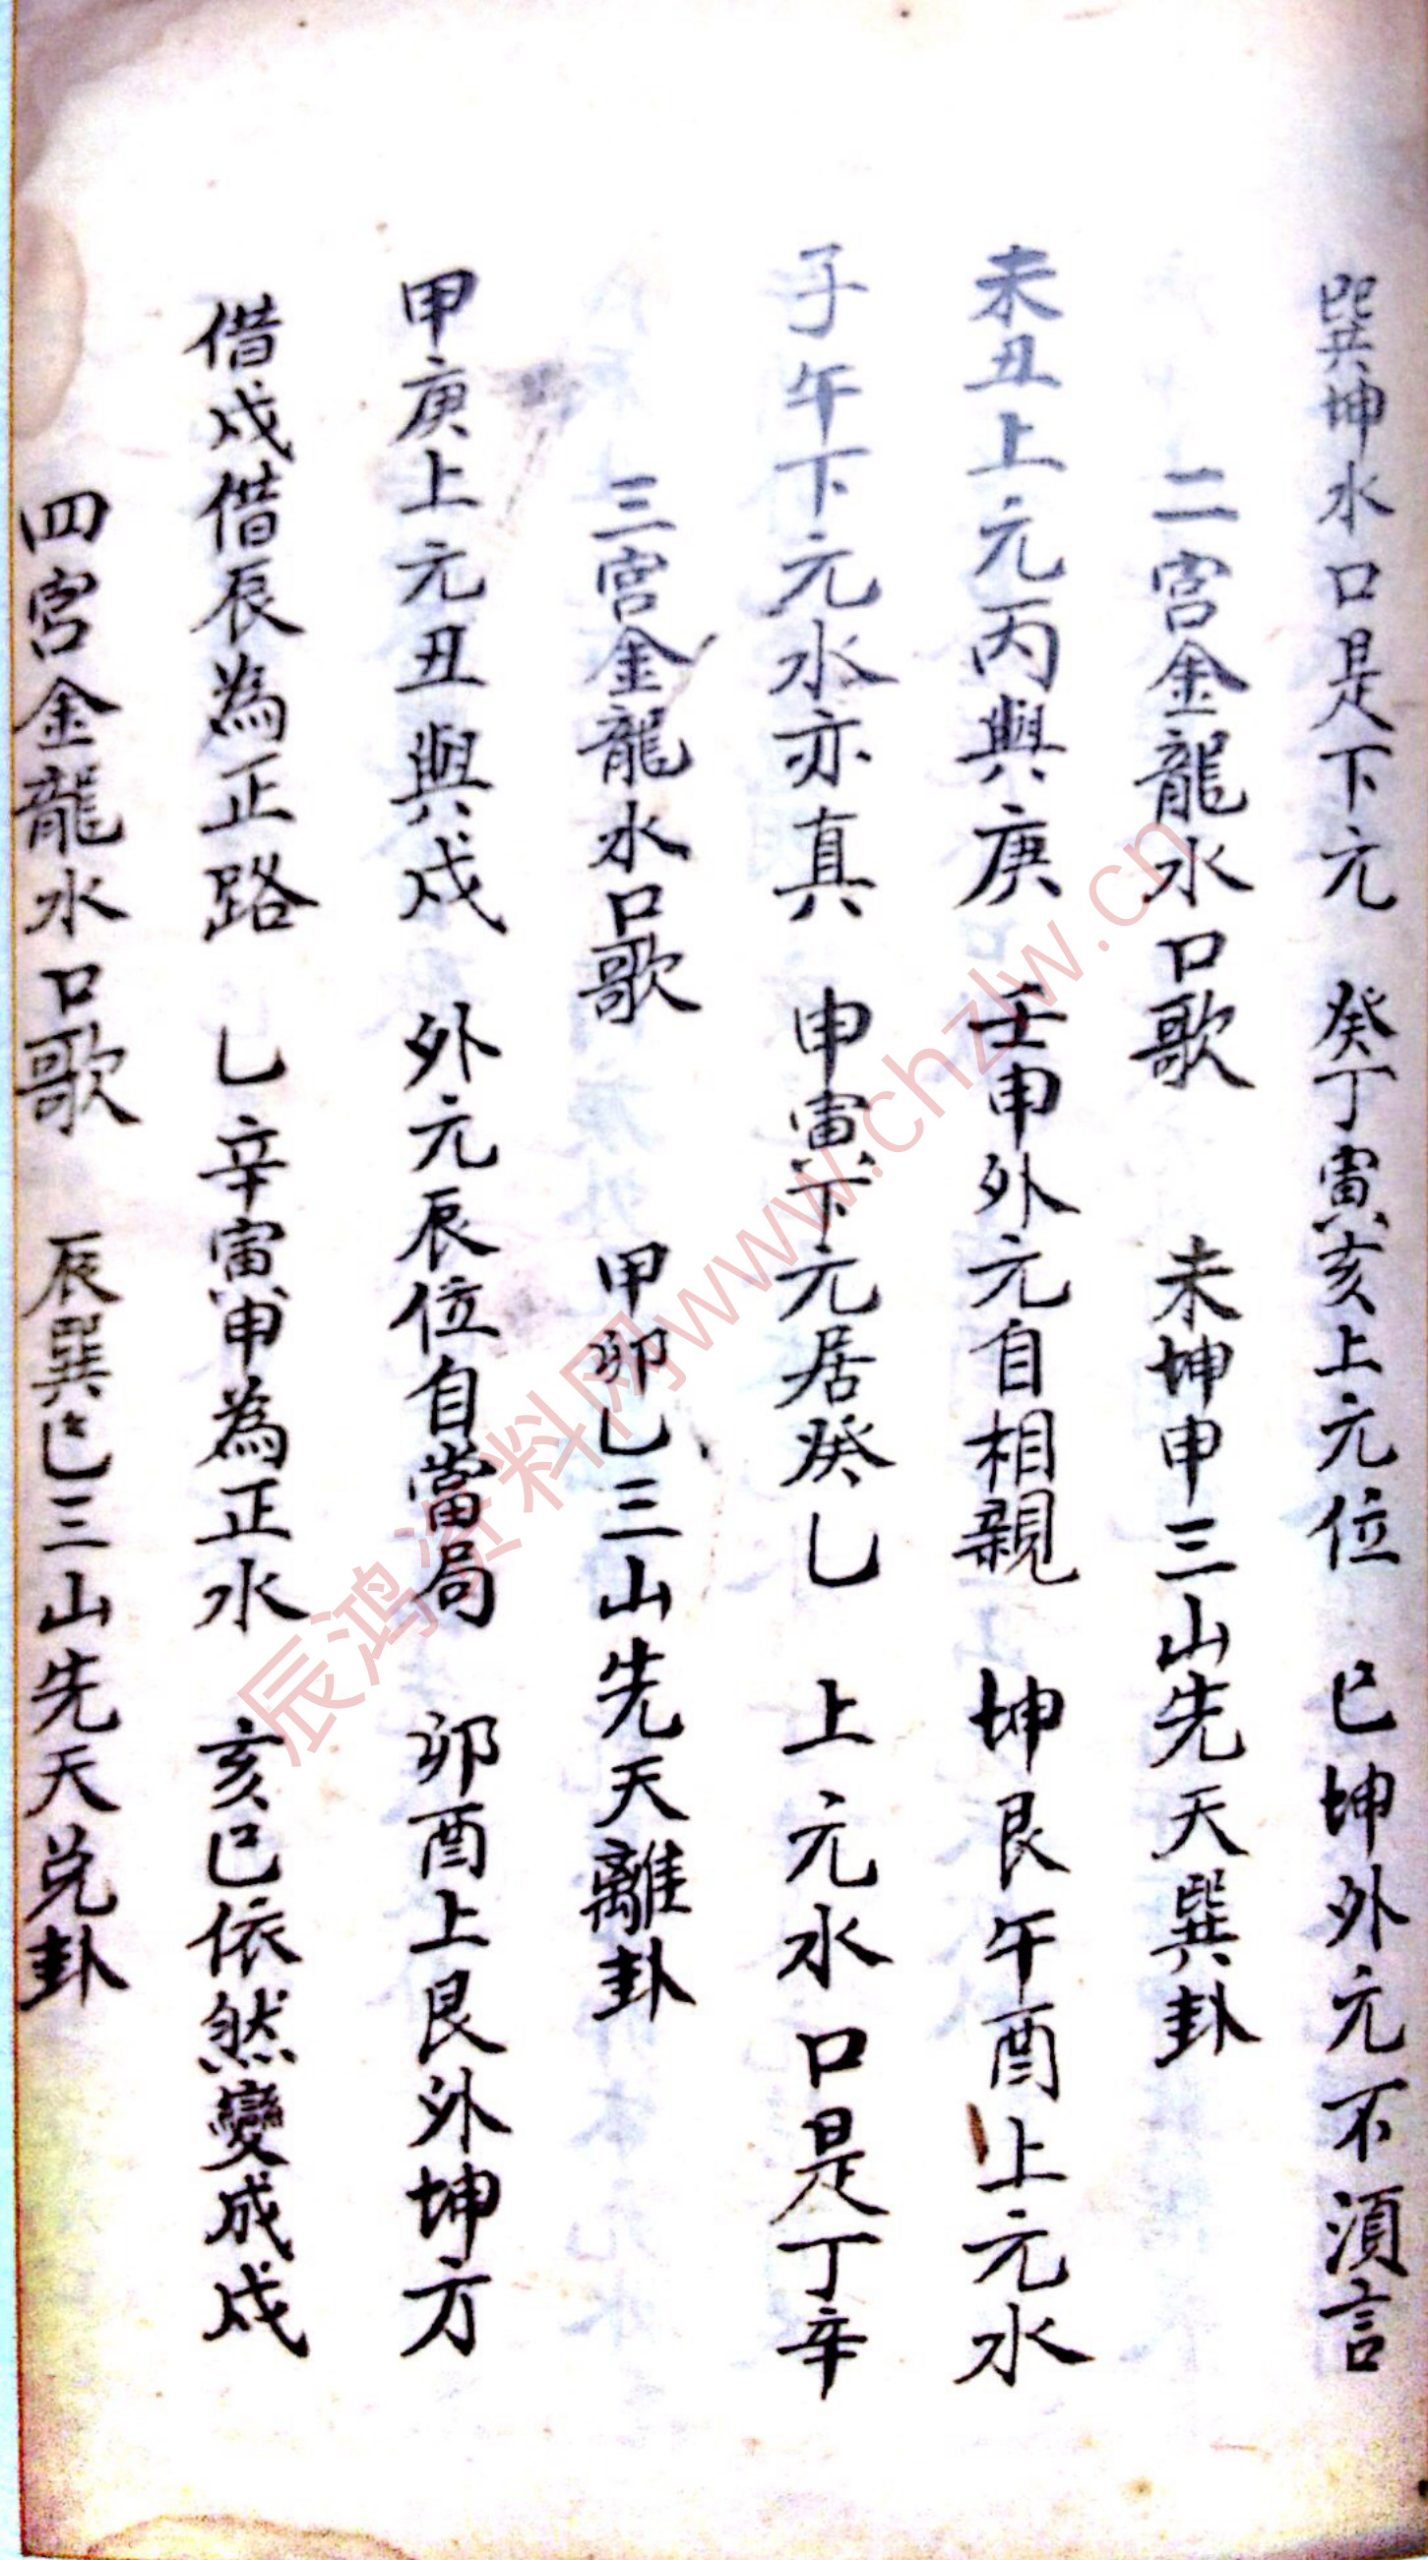 巽坤水口是下元 癸丁寅亥上元位 巳坤外元不須言
二宮金龍水口歌 未坤申三山先天巽卦
未丑上元丙與庚 壬申外元自相親 坤艮午酉上元水
子午下元水亦真 申寅下元居癸乙 上元水口是丁辛
三宮金龍水口歌 甲卯乙三山先天離卦
甲庚上元丑與戌 外元辰位自當局 卯酉上艮外坤方
借戌借辰為正路 乙辛寅申為正水 亥巳依然變成戌
四宮金龍水口歌 辰巽巳三山先天兌卦
辰鸿资料网www.chzlw.cn